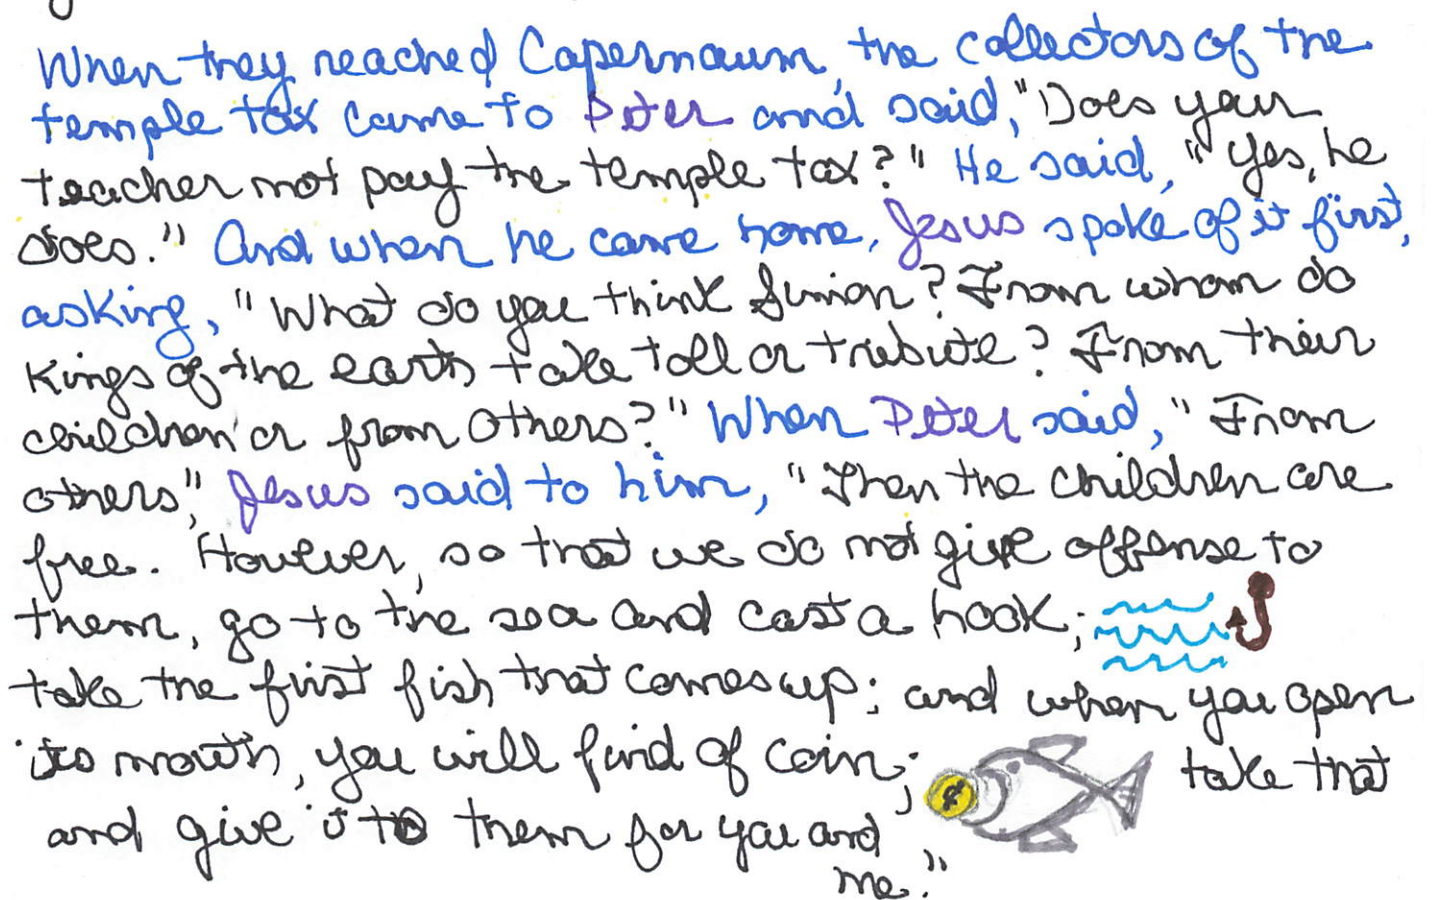 When they reached Capernaum, the collectors of the
temple tax came to Peter and said, "Does your
teacher not pay the temple tax?" He said, "Yes, he
does." And when he came home, Jesus spoke of it first,
asking, "What do you think Simon? From whom do
Kings of the earth take toll or tribute? From their
children or from others?" When Peter said, "From
others," Jesus said to him, "Then the children are
free. However, so that we do not give offense to
them, go to the sea and cast a hook;
take the first fish that comes up; and when you open
its mouth, you will find of coin;
take that
and give it to them for you and
me."